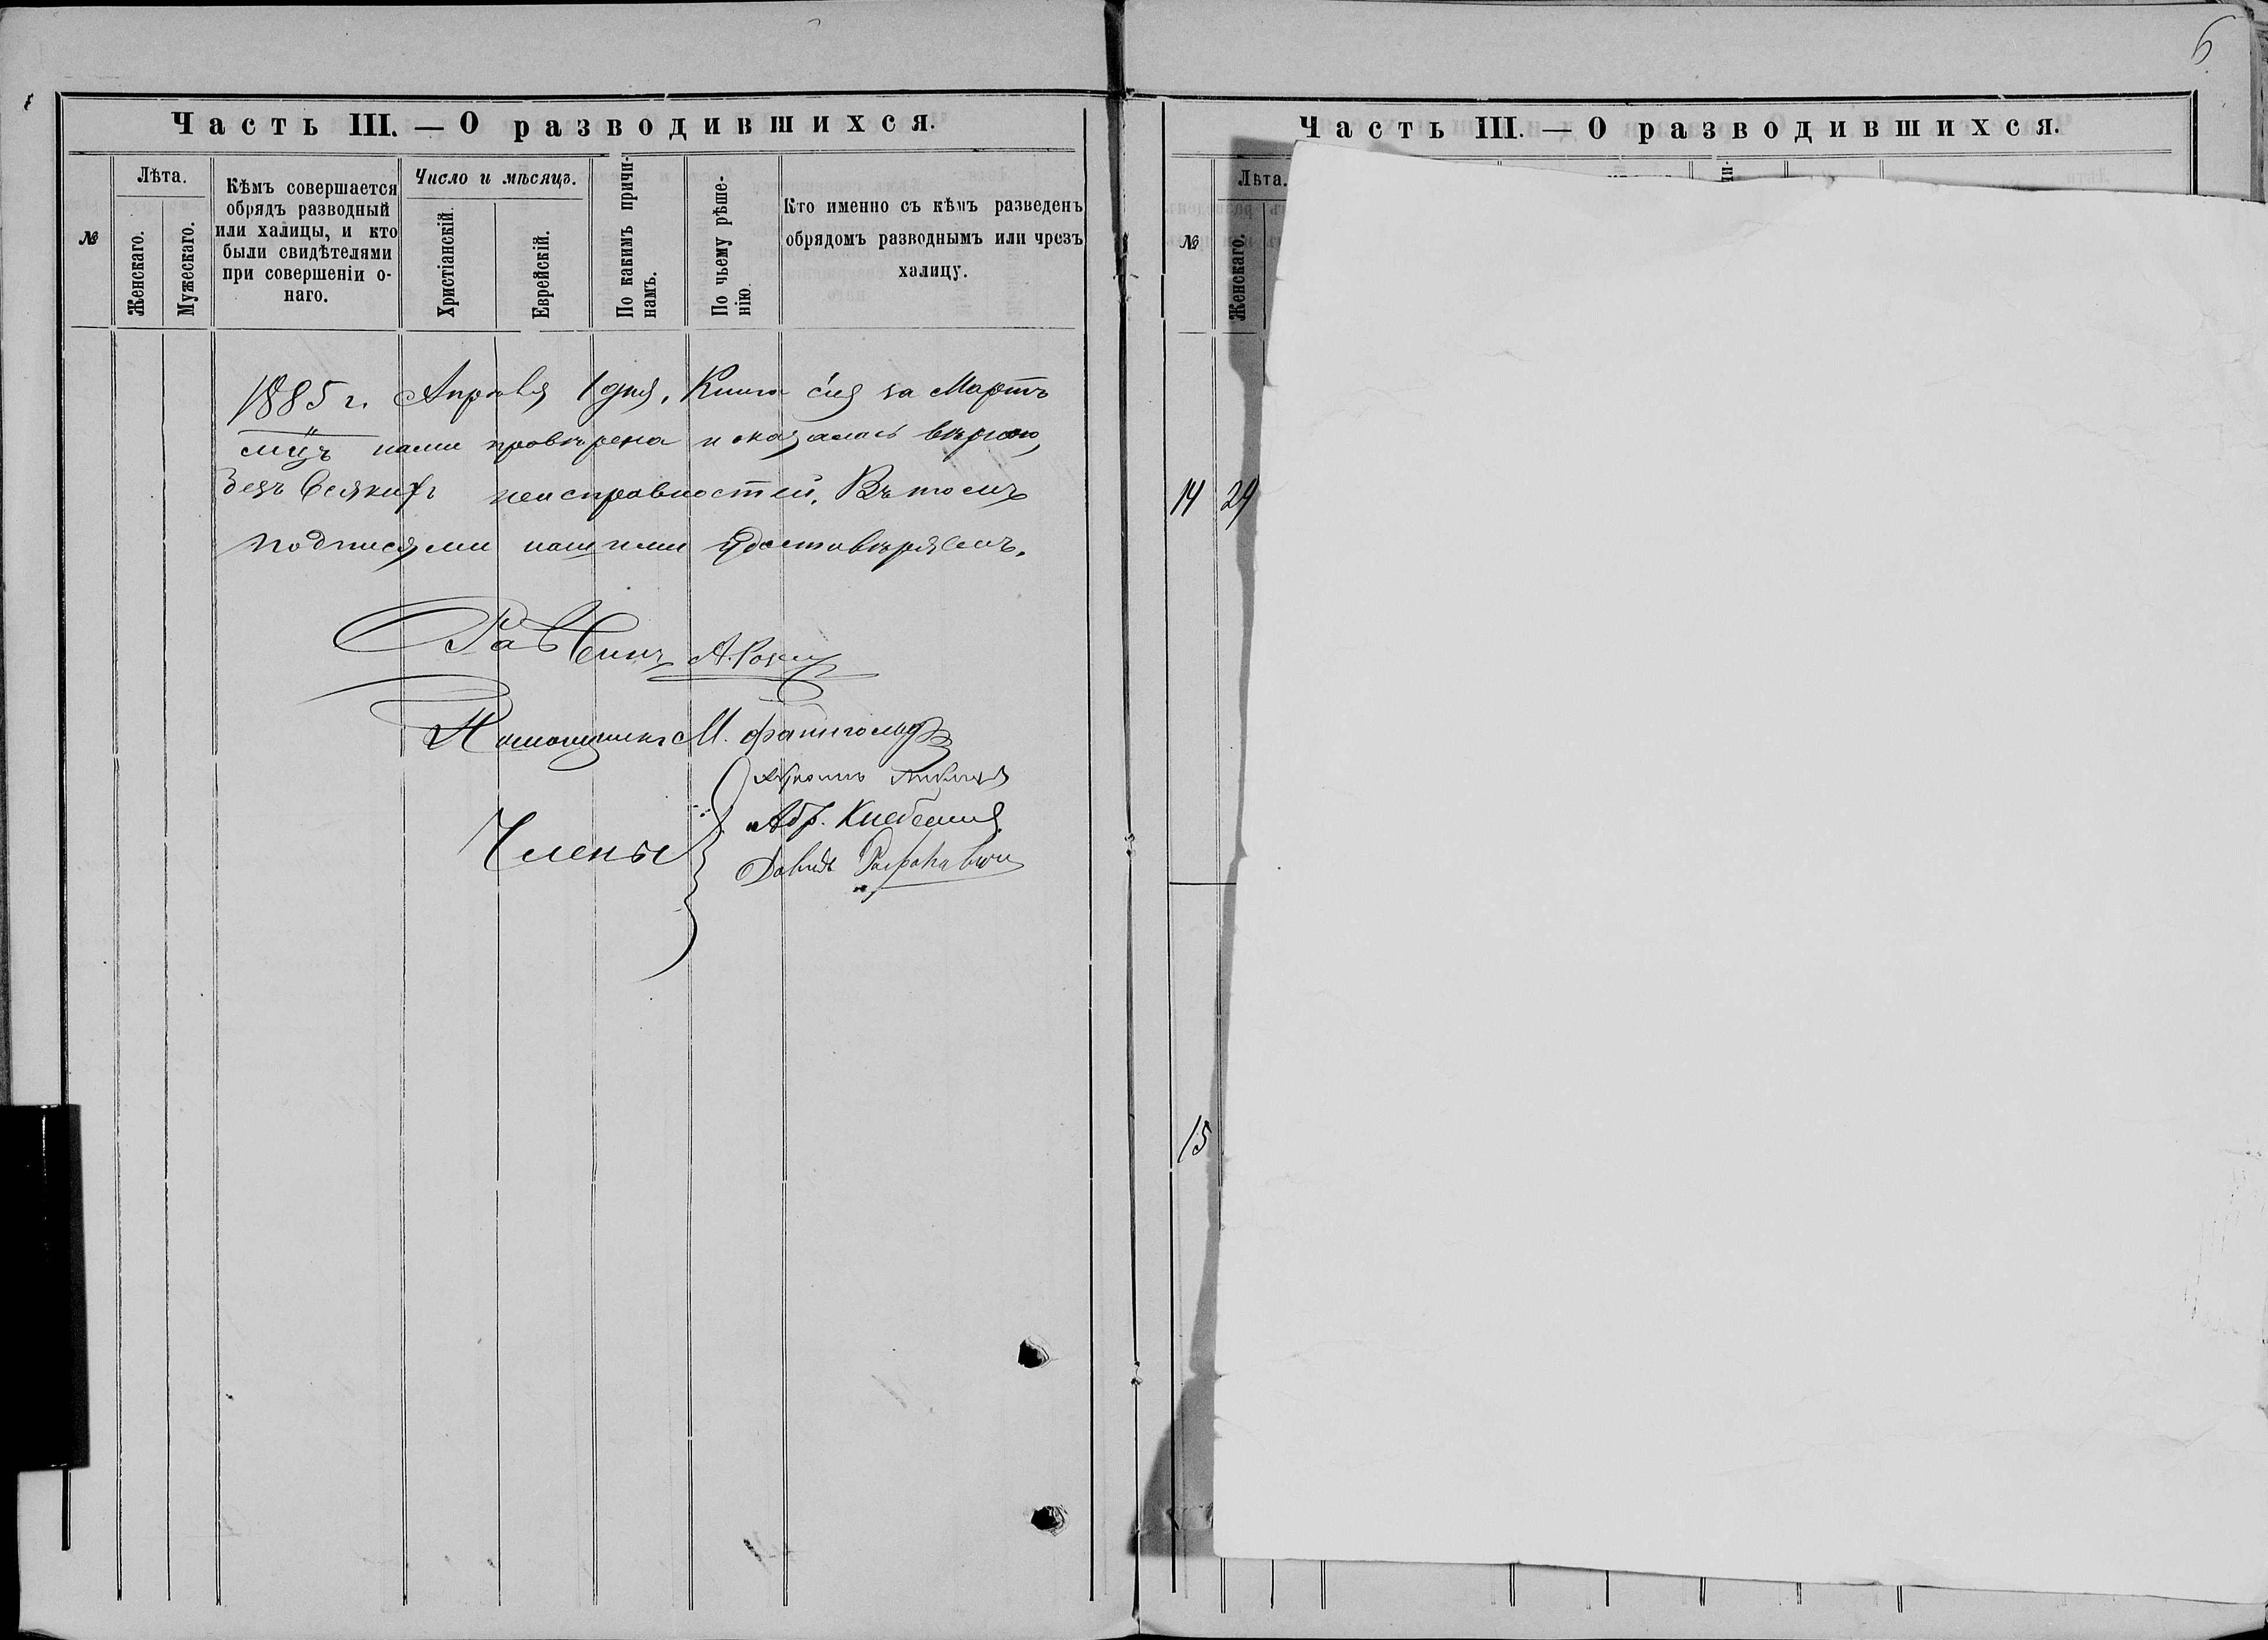 6
Часть III. — О разводившихся.
№
Лѣта.
Женскаго.
Мужескаго.
Кѣмъ совершается
обрядъ разводный
или халицы, и кто
были свидѣтелями
при совершеніи о-
наго.
Число и мѣсяцъ.
Христіанскій.
Еврейскій.
По какимъ причи-
намъ.
По чьему рѣше-
нію.
Кто именно съ кѣмъ разведенъ
обрядомъ разводнымъ или чрезъ
халицу.
1885 г. Апрѣля 1 дня, Книга сія за Мартъ
мцъ нами провѣрена и оказалась вѣрною,
безъ всякихъ неисправностей. Въ томъ
подписями нашими удостовѣряемъ.
Раввинъ А.
Помощникъ М.
Члены
Абр.
Давидъ
Часть III. — О разводившихся.
№
Лѣта.
Женскаго.
14 24
15